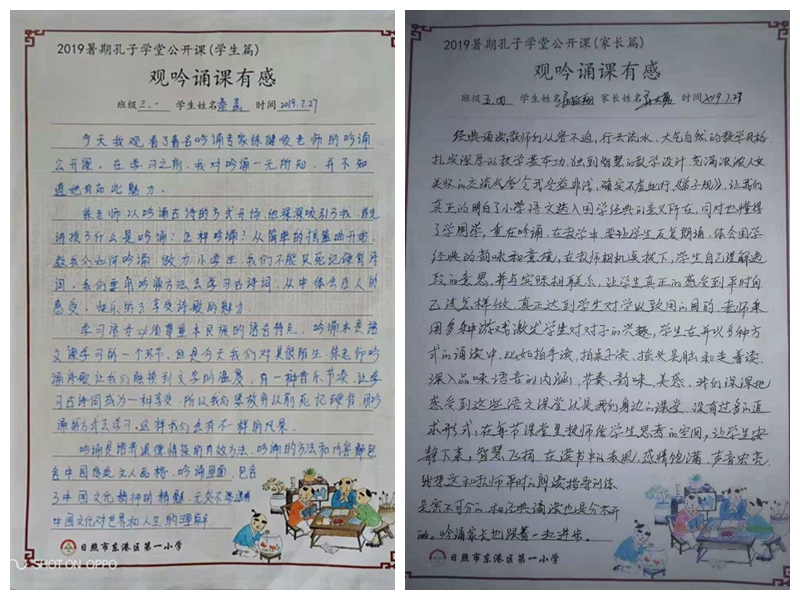 2019暑期孔子学堂公开课(学生篇)
观吟诵课有感
班级三.一 学生姓名秦 时间2019.7.27
今天我观看了著名吟诵专家徐健顺老师的吟诵
公开课。在学习之前，我对吟诵一无所知，并不知
道她有如此魅力。
徐老师以吟诵古诗的方式开场，他深深吸引了我，首先
讲授了什么是吟诵？怎样吟诵？从简单的摇篮曲开始，
教我们如何吟诵，做为小学生，我们不能只死记硬背诗
词，我们要用吟诵方法去学习古诗词，从中体会古人的
感受，快乐的去享受诗歌的魅力。
学习语言必须尊重本民族的语言特点，吟诵本是语
文课学习的一个环节，但是今天我们对其很陌生，徐老师吟
诵诗歌让我们触摸到文字的温度，有一种音乐节奏，让学
习古诗词成为一种享受，所以我们要放弃以前死记硬背，用吟
诵的方式去学习，这样我们会有不一样的效果。
吟诵是培养道德情操的有效方法，吟诵的方法和内容都包
含中国历史文人品格，吟诵里面，包含
了中国文化精神的精髓，无处不渗透着
中国文化对世界和人生的理解。
日照市东港区第一小学
SHOT ON OPPO
2019暑期孔子学堂公开课(家长篇)
观吟诵课有感
班级五.四 学生姓名 家长姓名 时间2019.7.27
经典诵读教师们从容不迫，行云流水，大气自然的教学风格，
扎实深厚的教学基本功，独到智慧的教学设计，充满浓浓人文
关怀的交流气氛令我受益非浅，确实不虚此行，《弟子规》，让我们
真正的明白了小学语文选入国学经典的意义所在，同时也懂得
了学国学，重在吟诵，在教学中要让学生反复朗诵，体会国学
经典的韵味和意境，在教师相机点拨下，学生自己理解选
段的意思，并与实际相联系，让学生真正的感受到平时自
己该怎样做，真正达到学生对学以致用的目的。老师采
用多种游戏激发学生对对子的兴趣，学生在并以多种方
式的诵读中，比如拍手读，拍桌子读，摇头晃脑和走着读，
深入品味语音的内涵，节奏、韵味、美感，我们深深地
感受到这些语文课堂就是我们身边的课堂，没有过多的追
求形式，在每节课堂里教师给学生思考的空间，让学生安
静下来，智慧飞扬，在读书中的表现，感情饱满，声音宏亮，
我想这和教师平时的朗读指导训练
是密不可分的，和经典诵读也是分不开
的。吟诵家长也跟着一起进步。
日照市东港区第一小学